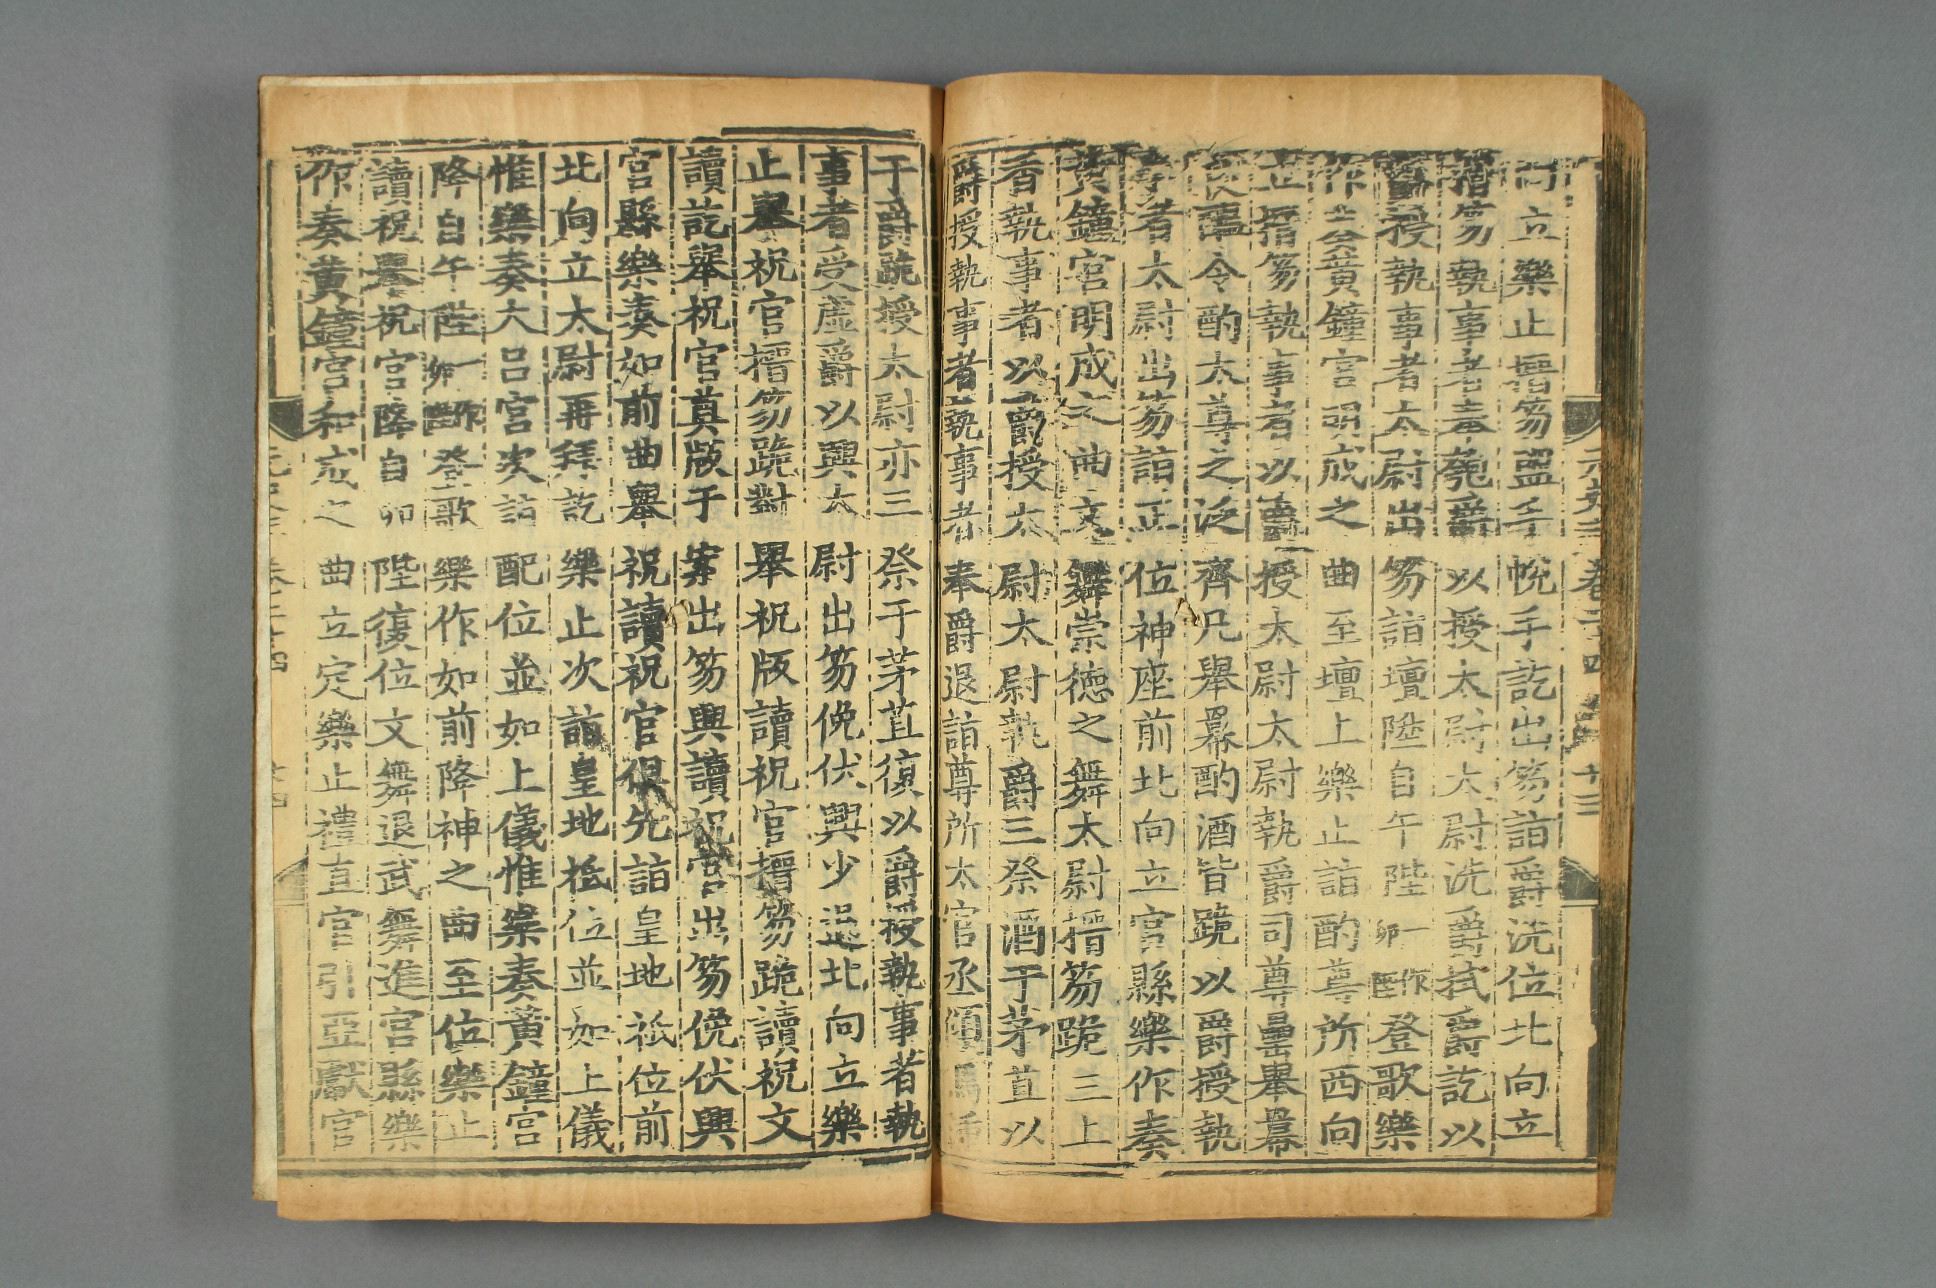 向立樂止搢笏盥手帨手訖出笏詣爵洗位北向立
搢笏執事者奉匏爵以授太尉太尉洗爵拭爵訖以
爵授執事者太尉出笏詣壇陞自午陛一作卯酉登歌樂
作奏黃鐘宮明成之曲至壇上樂止詣酌尊所西向
立搢笏執事者以爵授太尉太尉執爵司尊罍舉羃
良醞令酌太尊之泛齊凡舉羃酌酒皆跪以爵授執
事者太尉出笏詣正位神座前北向立宮縣樂作奏
黃鐘宮明成之曲文舞崇德之舞太尉搢笏跪三上
香執事者以爵授太尉太尉執爵三祭酒于茅苴以
爵授執事者執事者奉爵退詣尊所太官丞傾馬湩
于爵跪授太尉亦三祭于茅苴復以爵授執事者執
事者受虛爵以興太尉出笏俛伏興少退北向立樂
止舉祝官搢笏跪對舉祝版讀祝官搢笏跪讀祝文
讀訖舉祝官奠版于案出笏興讀祝官出笏俛伏興
宮縣樂奏如前曲舉祝讀祝官俱先詣皇地祇位前
北向立太尉再拜訖樂止次詣皇地祇位並如上儀
惟樂奏大呂宮次詣配位並如上儀惟樂奏黃鐘宮
降自午陛一作卯酉登歌樂作如前降神之曲至位樂止
讀祝舉祝官降自卯陛復位文舞退武舞進宮縣樂
作奏黃鐘宮和成之曲立定樂止禮直官引亞獻官